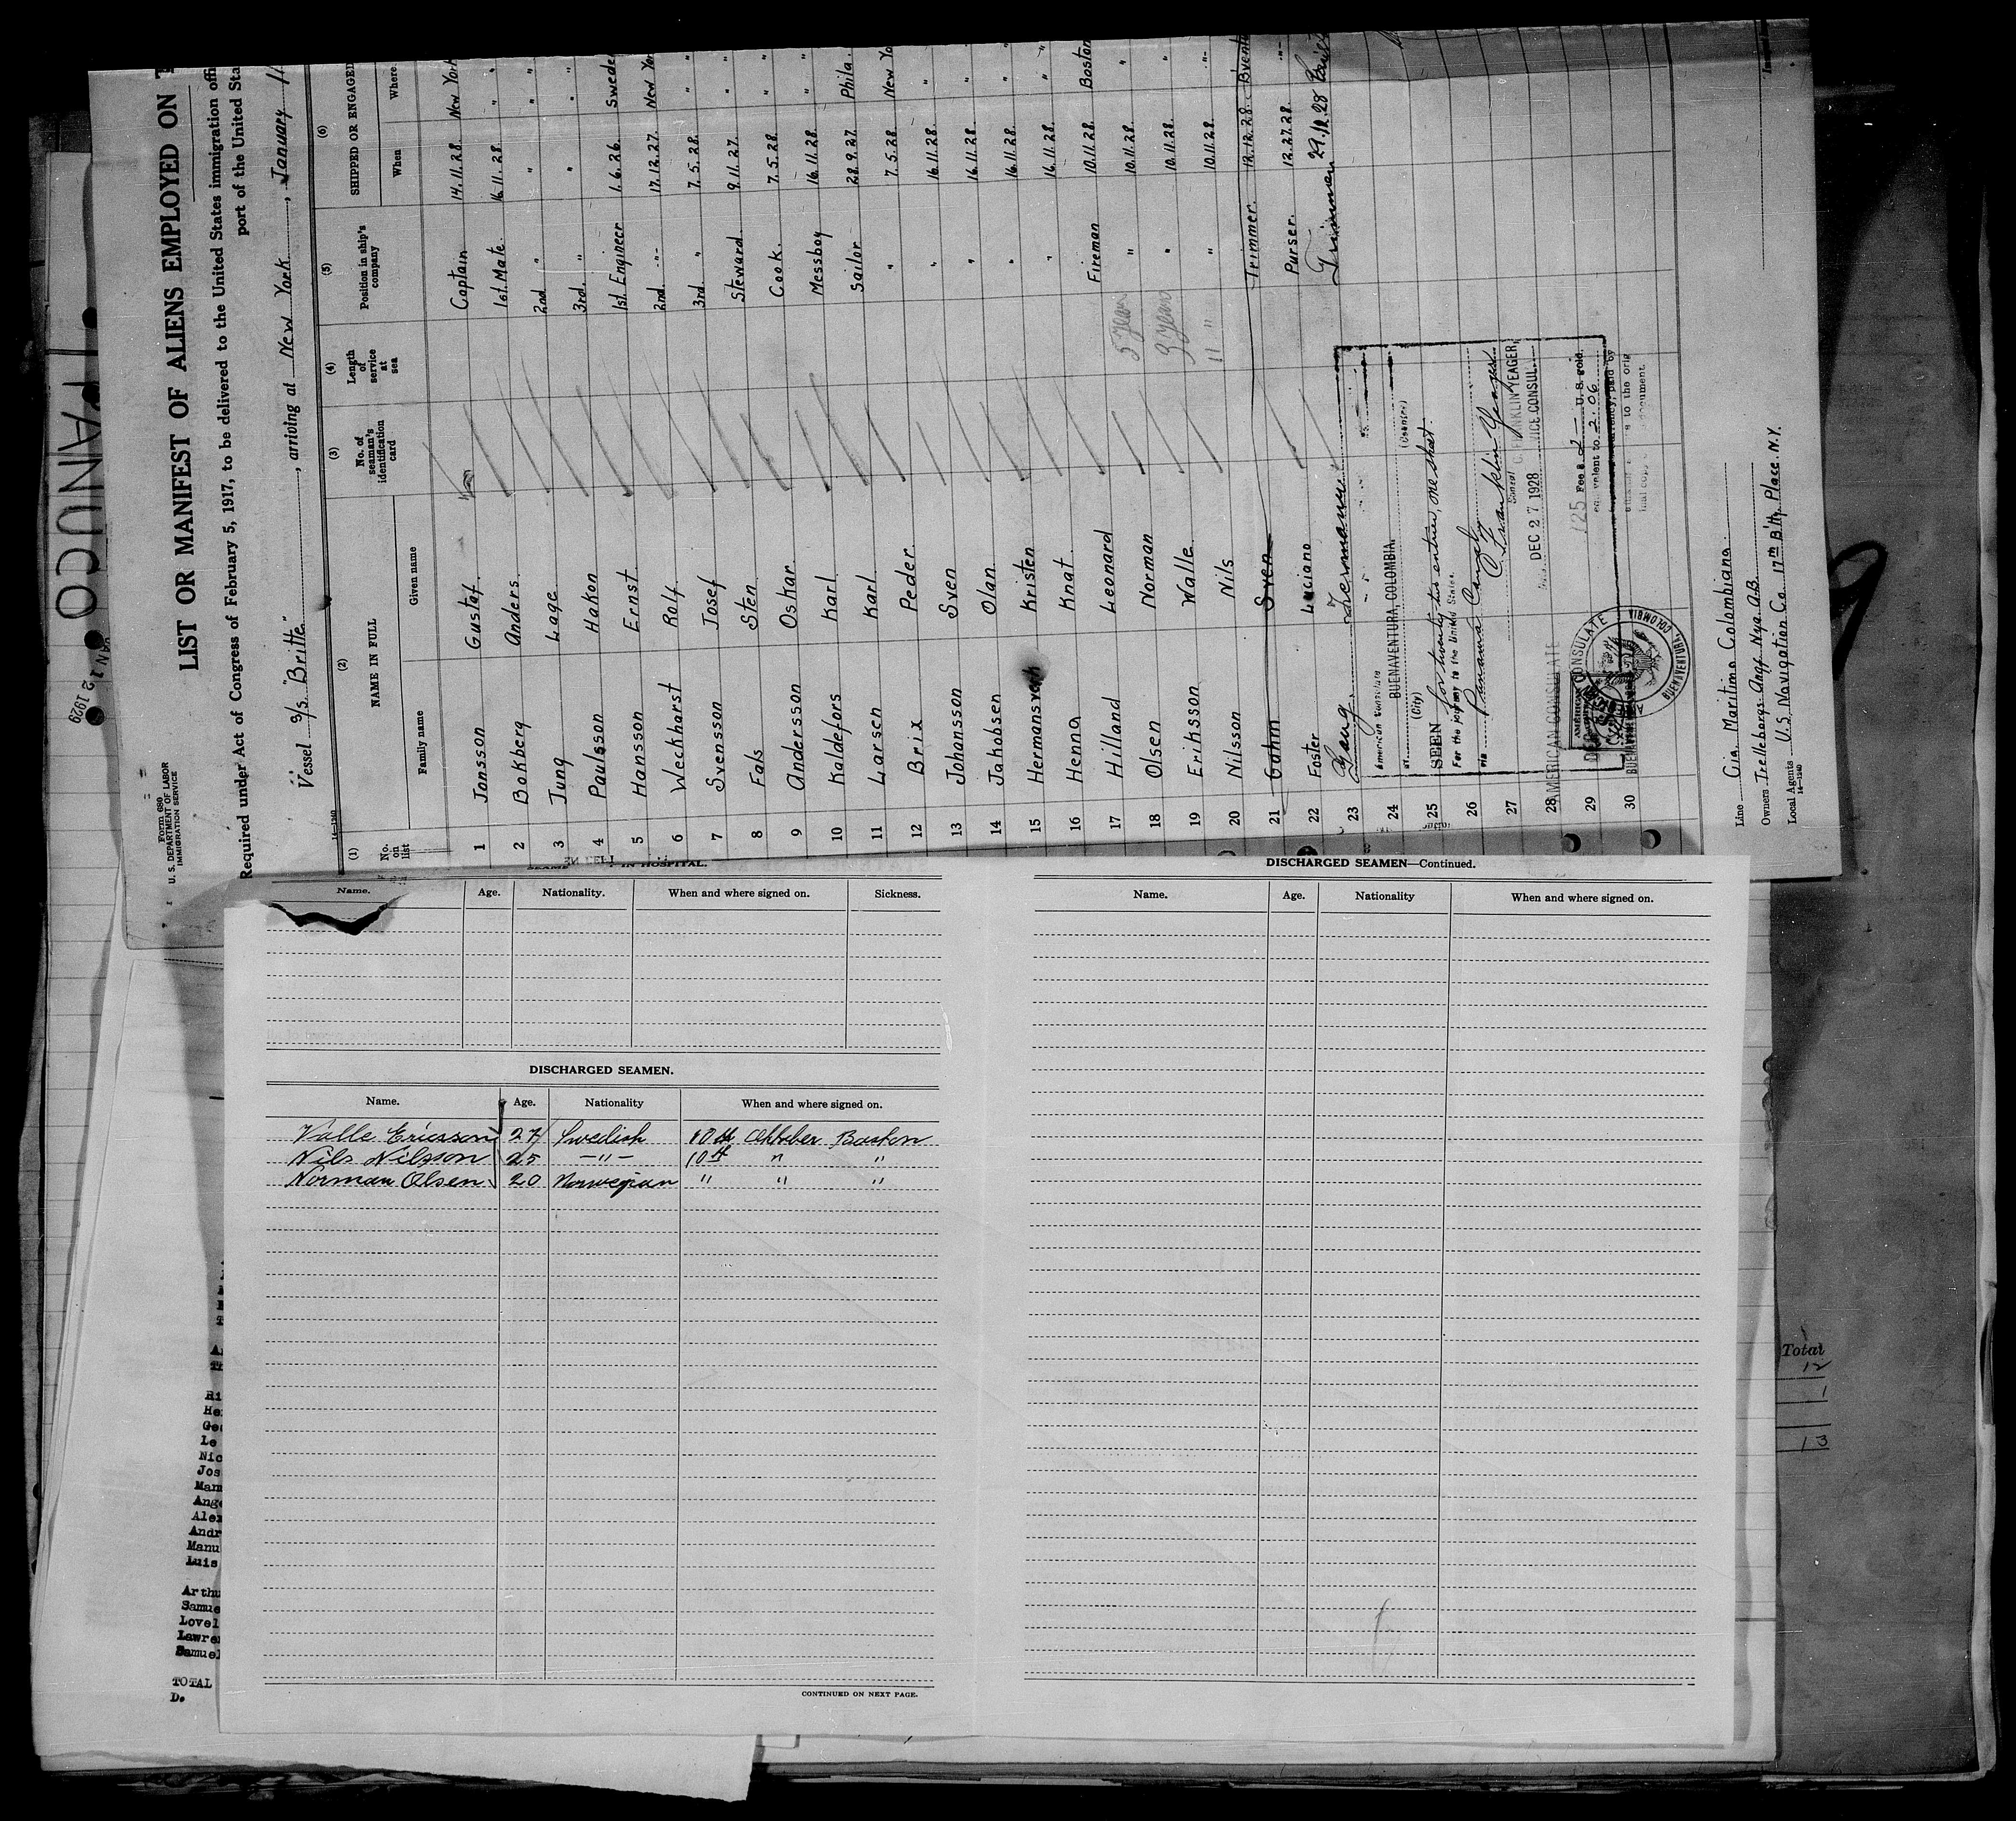 PANUCO
JAN 12 1929
Form 680
U. S. DEPARTMENT OF LABOR
IMMIGRATION SERVICE
LIST OR MANIFEST OF ALIENS EMPLOYED ON
Required under Act of Congress of February 5, 1917, to be delivered to the United States immigration
port of the United
Vessel S/S. "Britte", arriving at New York, January
14-1240
(1) (2) (3) (4) (5) (6)
No. on list NAME IN FULL No. of seaman's identification card Length of service at sea Position in ship's company SHIPPED OR ENGAGED
Family name Given name When Where
1 Jonsson Gustaf Captain 14.11.28. New York
2 Bokberg Anders 1st. Mate 16.11.28. "
3 Jung Lage 2nd " " "
4 Paulsson Hakon 3rd. " " "
5 Hansson Ernst 1st Engineer 1.6.26.
6 Weckhorst Rolf 2nd -"- 17.12.27.
7 Svensson Josef 3rd " 7.5.28. "
8 Fals Sten Steward 9.11.27. "
9 Andersson Oskar Cook. 7.5.28 "
10 Kaldefors Karl Messboy 16.11.28 "
11 Larsen Karl Sailor 28.9.27. Phila.
12 Brix Peder " 7.5.28
13 Johansson Sven " 16.11.28. "
14 Jakobsen Olan " 16.11.28. "
15 Hermansverk Kristen " 16.11.28. "
16 Henna Knat " 16.11.28. "
17 Hilland Leonard Fireman 10.11.28. Boston
18 Olsen Norman 5 years " 10.11.28. "
19 Eriksson Walle 9 years " 10.11.28. "
20 Nilsson Nils 11 " " 10.11.28. -"-
21 Gahm Sven Trimmer. 12.12.28.
22 Foster Luciano Purser. 12.27.28. -"-
23 Hermann Trimmer 29.12.28
24
25
26
27
28
29
30
American Consulate
BUENAVENTURA, COLOMBIA.
(City) (Country)
SEEN for twenty two entries, one sheet.
For the journey to the United States.
via Panama Canal
C. Franklin Yeager
C. FRANKLIN YEAGER,
VICE CONSUL.
DEC 27 1928
125 Fee $ 2 U. S. gold.
equivalent to 2.06
AMERICAN CONSULATE
BUENAVENTURA, COLOMBIA
Line Cia Maritima Colombiana.
Owners Trelleborgs Angf. Nya A.B.
Local Agents U.S Navigation Co. 17th B'tty Place. N.Y.
14-1240
IN HOSPITAL.
Name. Age. Nationality. When and where signed on. Sickness.
DISCHARGED SEAMEN.
Name. Age. Nationality When and where signed on.
Valle Ericsson 27 Swedish 10th Oktober Boston
Nils Nilsson 25 -"- 10th " "
Norman Olsen 20 Norwegian " " "
CONTINUED ON NEXT PAGE.
DISCHARGED SEAMEN—Continued.
Name. Age. Nationality When and where signed on.
Total
12
1
13
Le
Luis
TOTAL